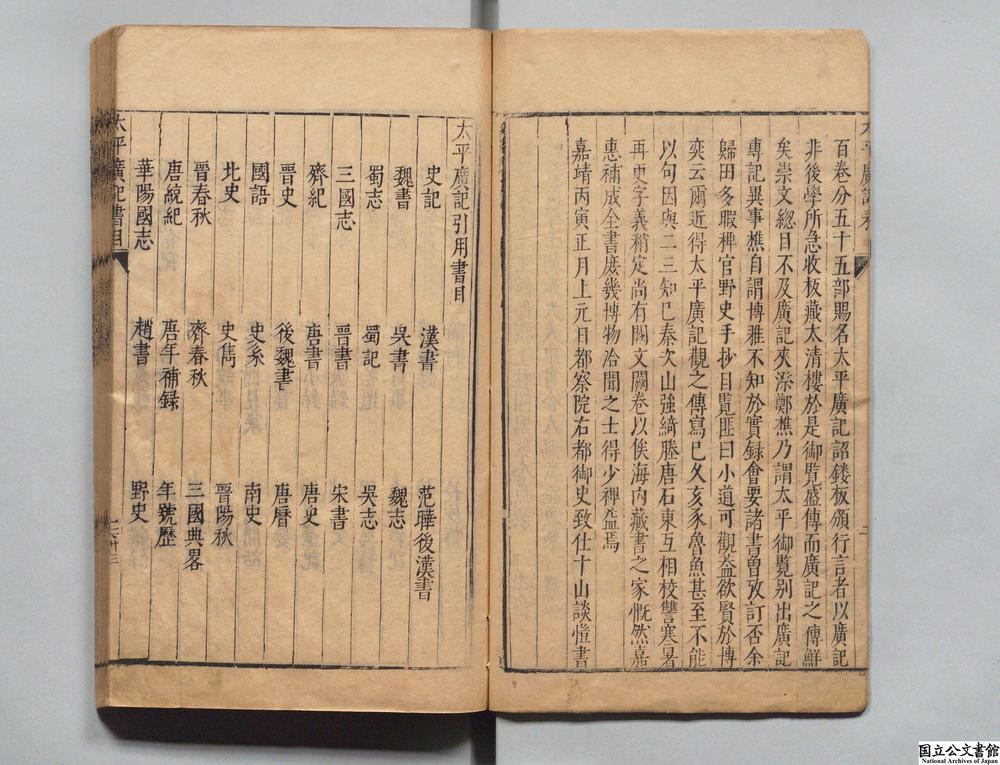 百卷分五十五部賜名太平廣記詔鏤板頒行言者以廣記
非後學所急收板藏太清樓於是御覧盛傳而廣記之傳鮮
矣崇文總目不及廣記夾漈鄭樵乃謂太平御覧别出廣記
專記異事樵自謂博雅不知於實録會要諸書曽攷訂否余
歸田多暇稗官野史手抄目覧匪曰小道可觀葢欲賢於博
奕云爾近得太平廣記觀之傳寫已久亥豕魯魚甚至不能
以句因與二三知巳秦次山強綺塍唐石東互相校讐寒暑
再更字義稍定尚有闕文闕卷以俟海内藏書之家慨然嘉
惠補成全書庻幾博物洽聞之士得少禆益焉
嘉靖丙寅正月上元日都察院右都御史致仕十山談愷書
太平廣記引用書目
史記 漢書 范曄後漢書
魏書 吳書 魏志
蜀志 蜀記 吳志
三國志 晉書 宋書
齊紀 唐書 唐史
晉史 後魏書 唐曆
國語 史系 南史
北史 史雋 晉陽秋
晉春秋 齊春秋 三國典畧
唐統紀 唐年補録 年號歷
華陽國志 趙書 野史
太平廣記書目
国立公文書館
National Archives of Japan